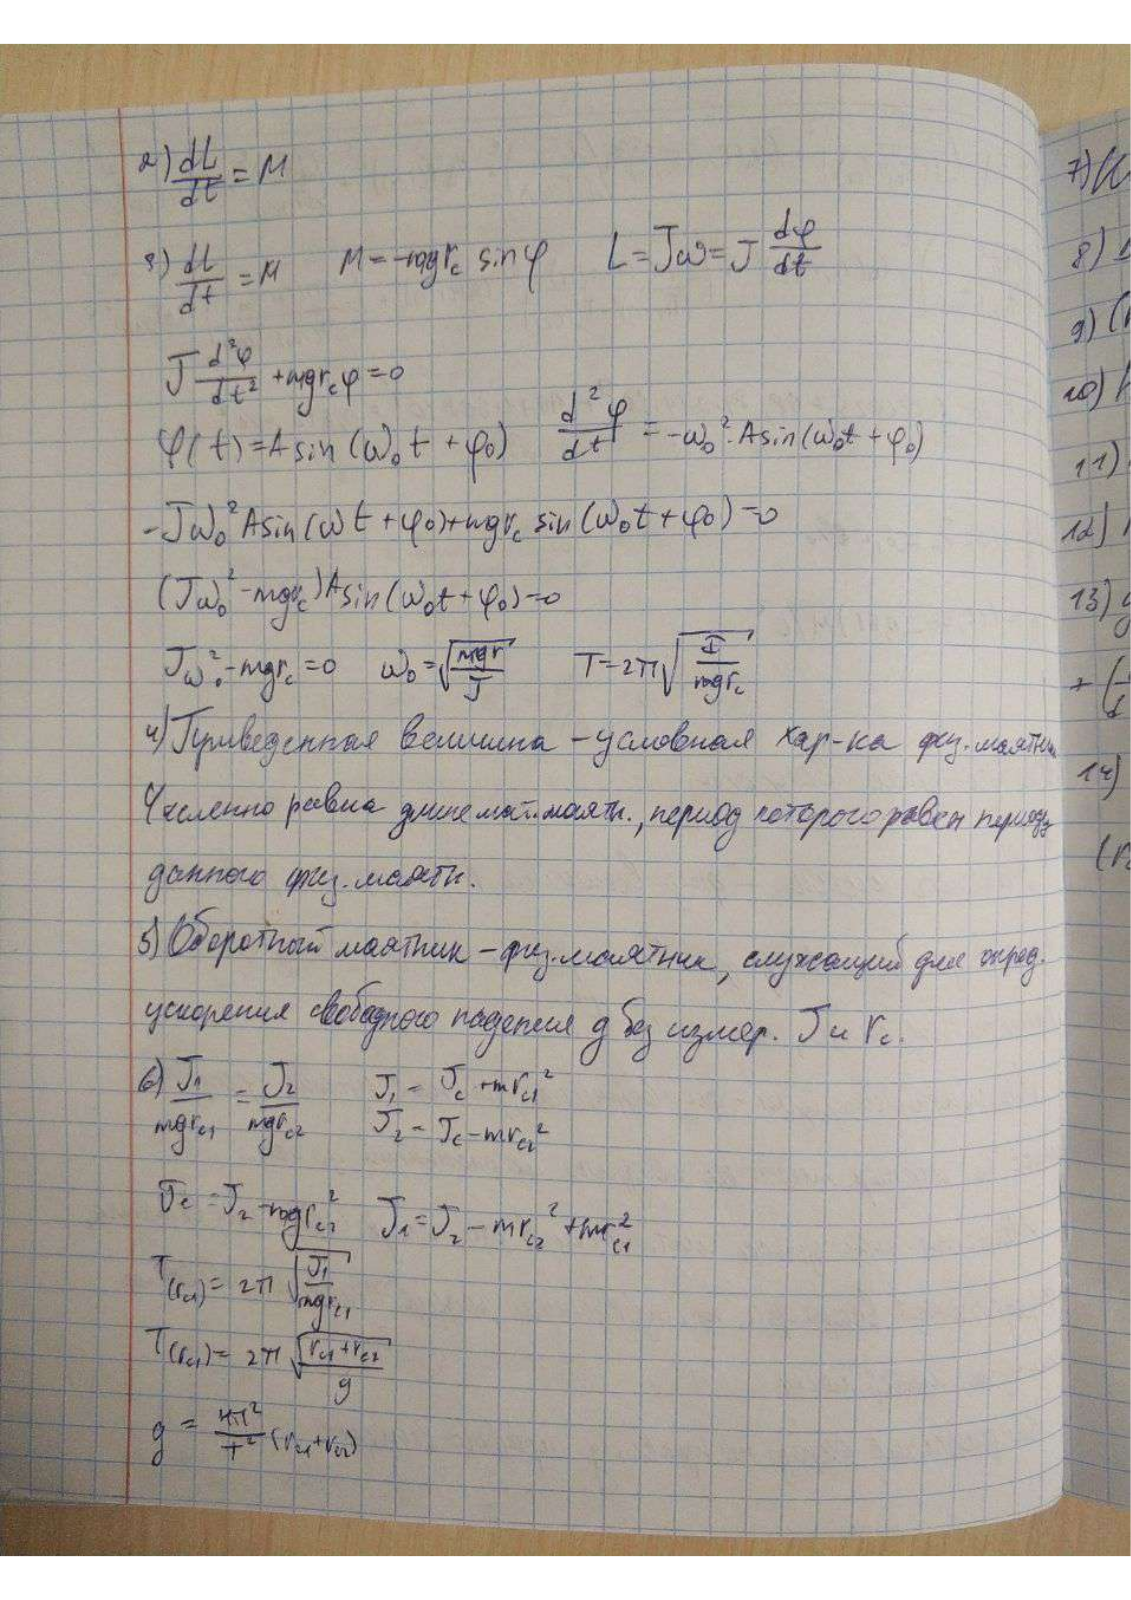 2) dL/dt = M
3) dL/dt = M    M = -mgr_c sin φ    L = Jω = J dφ/dt
J d²φ/dt² + mgr_cφ = 0
φ(t) = A sin (ω₀t + φ₀)    d²φ/dt = -ω₀²·A sin(ω₀t + φ₀)
-Jω₀² A sin(ωt + φ₀) + mgr_c sin(ω₀t + φ₀) = 0
(Jω₀² - mgr_c) A sin(ω₀t + φ₀) = 0
Jω₀² - mgr_c = 0    ω₀ = √(mgr/J)    T = 2π √(I/mgr_c)
4) Приведенная величина - условная хар-ка физ. маятник
Численно равна длине мат. маятн., период которого равен периоду
данного физ. маятн.
5) Оборотный маятник - физ. маятник, служащий для опред.
ускорения свободного падения g без измер. J и r_c.
6) J₁/mgr_c1 = J₂/mgr_c2    J₁ = J_c + mr_c1²
J₂ = J_c - mr_c2²
J_c = J₂ - mgr_c2²    J₁ = J₂ - mr_c2² + mr_c1²
T(r_c1) = 2π √(J₁/mgr_c1)
T(r_c1) = 2π √(r_c1 + r_c2)/g
g = 4π²/T² (r_c1 + r_c2)
7)
8)
9) (
10)
11)
12)
13)
+ (
14)
(r